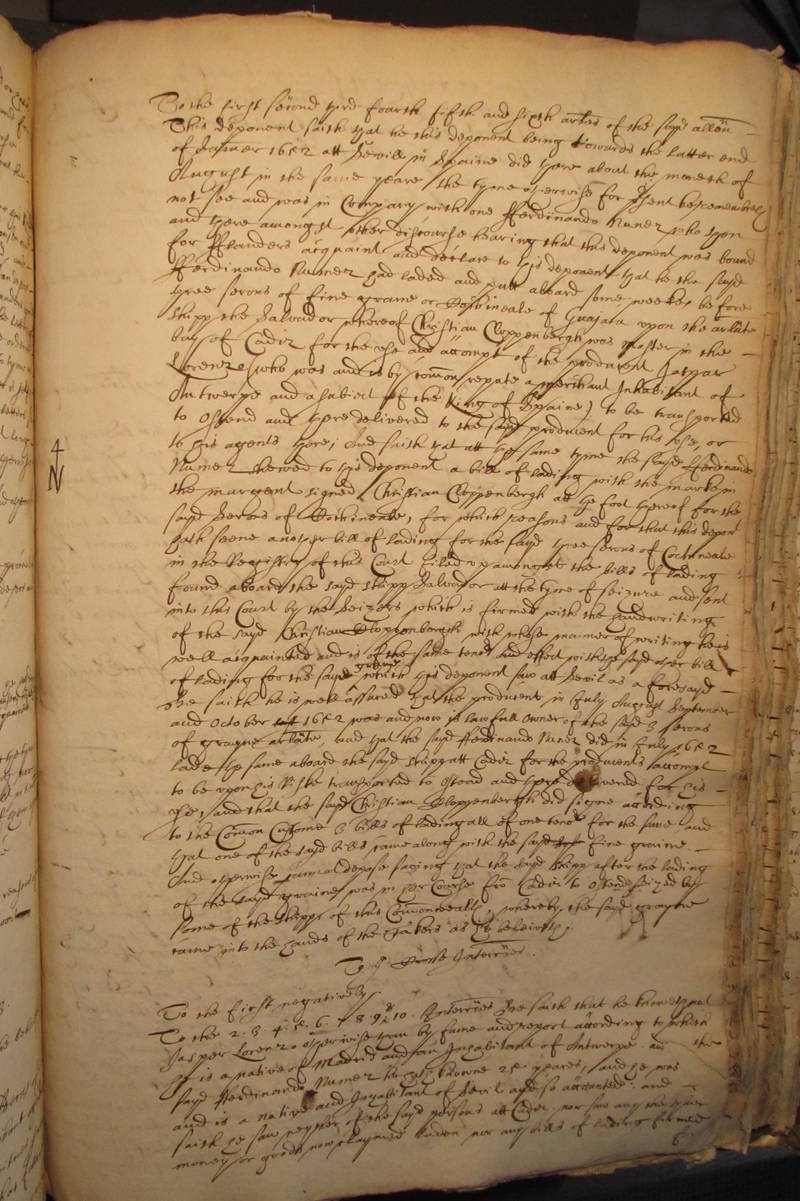 To the first second third fourth fifth and sixth arles of the sayd allon
This deponent saith that he this deponent being towards the latter end
of Summer 1652 att Sevill in Spaine did there about the moneth of
August in the same yeare the tyme otherwise for p'sent he remembreth
not see and was in Company with one Fferdinando Nunez who then
and there amongst other discourse hearing that this deponent was bound
for Fflanders acquaint and declare to this deponent that he the sayd
Fferdinando Nunnez had laded and put aboard some weekes before
three serons of fine graine or Cochineale of Guajaca upon the arlate
shipp the Salvador whereof Christian Cloppenbergh was Master in the
bay of Cadiz for the use and accompt of the producent Jaspar
Lorenzo (who was and is by comon repute a merchant Inhabitant of
Antwerpe and a subiect of the King of Spaine) to be transported
to Ostend and there delivered to the sayd producent for his use, or
to his agents there; And saith that att the same tyme the sayd Fferdinando
Nunez shewed to this deponent a bill of lading with the marke in
the margent signed Christian Cloppenbergh att the foot thereof for the
sayd Serons of Cochineale, for which reasons and for that this depont
hath seene another bill of lading for the sayd three serons of Cochineale
in the Registry of this Court filed up amongst the bills of lading
found aboard the sayd shipp Salvador att the tyme of seizure and sent
into this Court by the Seizers which is firmed with the handwriting
of the sayd Christian Cloppenbergh with whose manner of writing he is
well acquainted and is of the same tenor and effect with the sayd other bill
of lading for the sayd graine which this deponent saw att Sevil as aforesayd
He saith he is well assured that the producent in July August September
and October 1652 was and now is lawfull owner of the sayd 3 serons
of grayne arlate, and that the sayd Fferdinando Nunez did in July 1652
lade the same aboard the sayd shipp att Cadiz for the producents accompt
to be upon his Riske transported to Ostend and there delivered for his
use, and that the sayd Christian Cloppenbergh did signe according
to the Comon Custome 3 bills of lading all of one tenor for the same and
that one of the sayd bills came along with the sayd fine graine
And otherwise cannot depose saving that the sayd shipp after the lading
of the sayd graine was in her Course fro Cadiz to Ostend seized by
some of the shipps of this Comonwealth, whereby the sayd grayne
came into the hands of the takers as he beleiveth.
To the Crosse Interries.
To the first negatively.
To the 2. 3 4. 5. 6. 7. 8. 9th & 10. Interries He saith that he knoweth not
Jasper Lorenzo otherwise than by fame and report according to which
he is a native of Madrid and an Inhabitant of Antwerpe. and the
sayd Fferdinando Nunnez he hath knowne 25 yeares, and he was
and is a native and Inhabitant of Sevil and so accounted. and
saith he saw neyther of the sayd persons att Cadiz nor saw any the
money or goods now claymed laden nor any bills of lading firmed